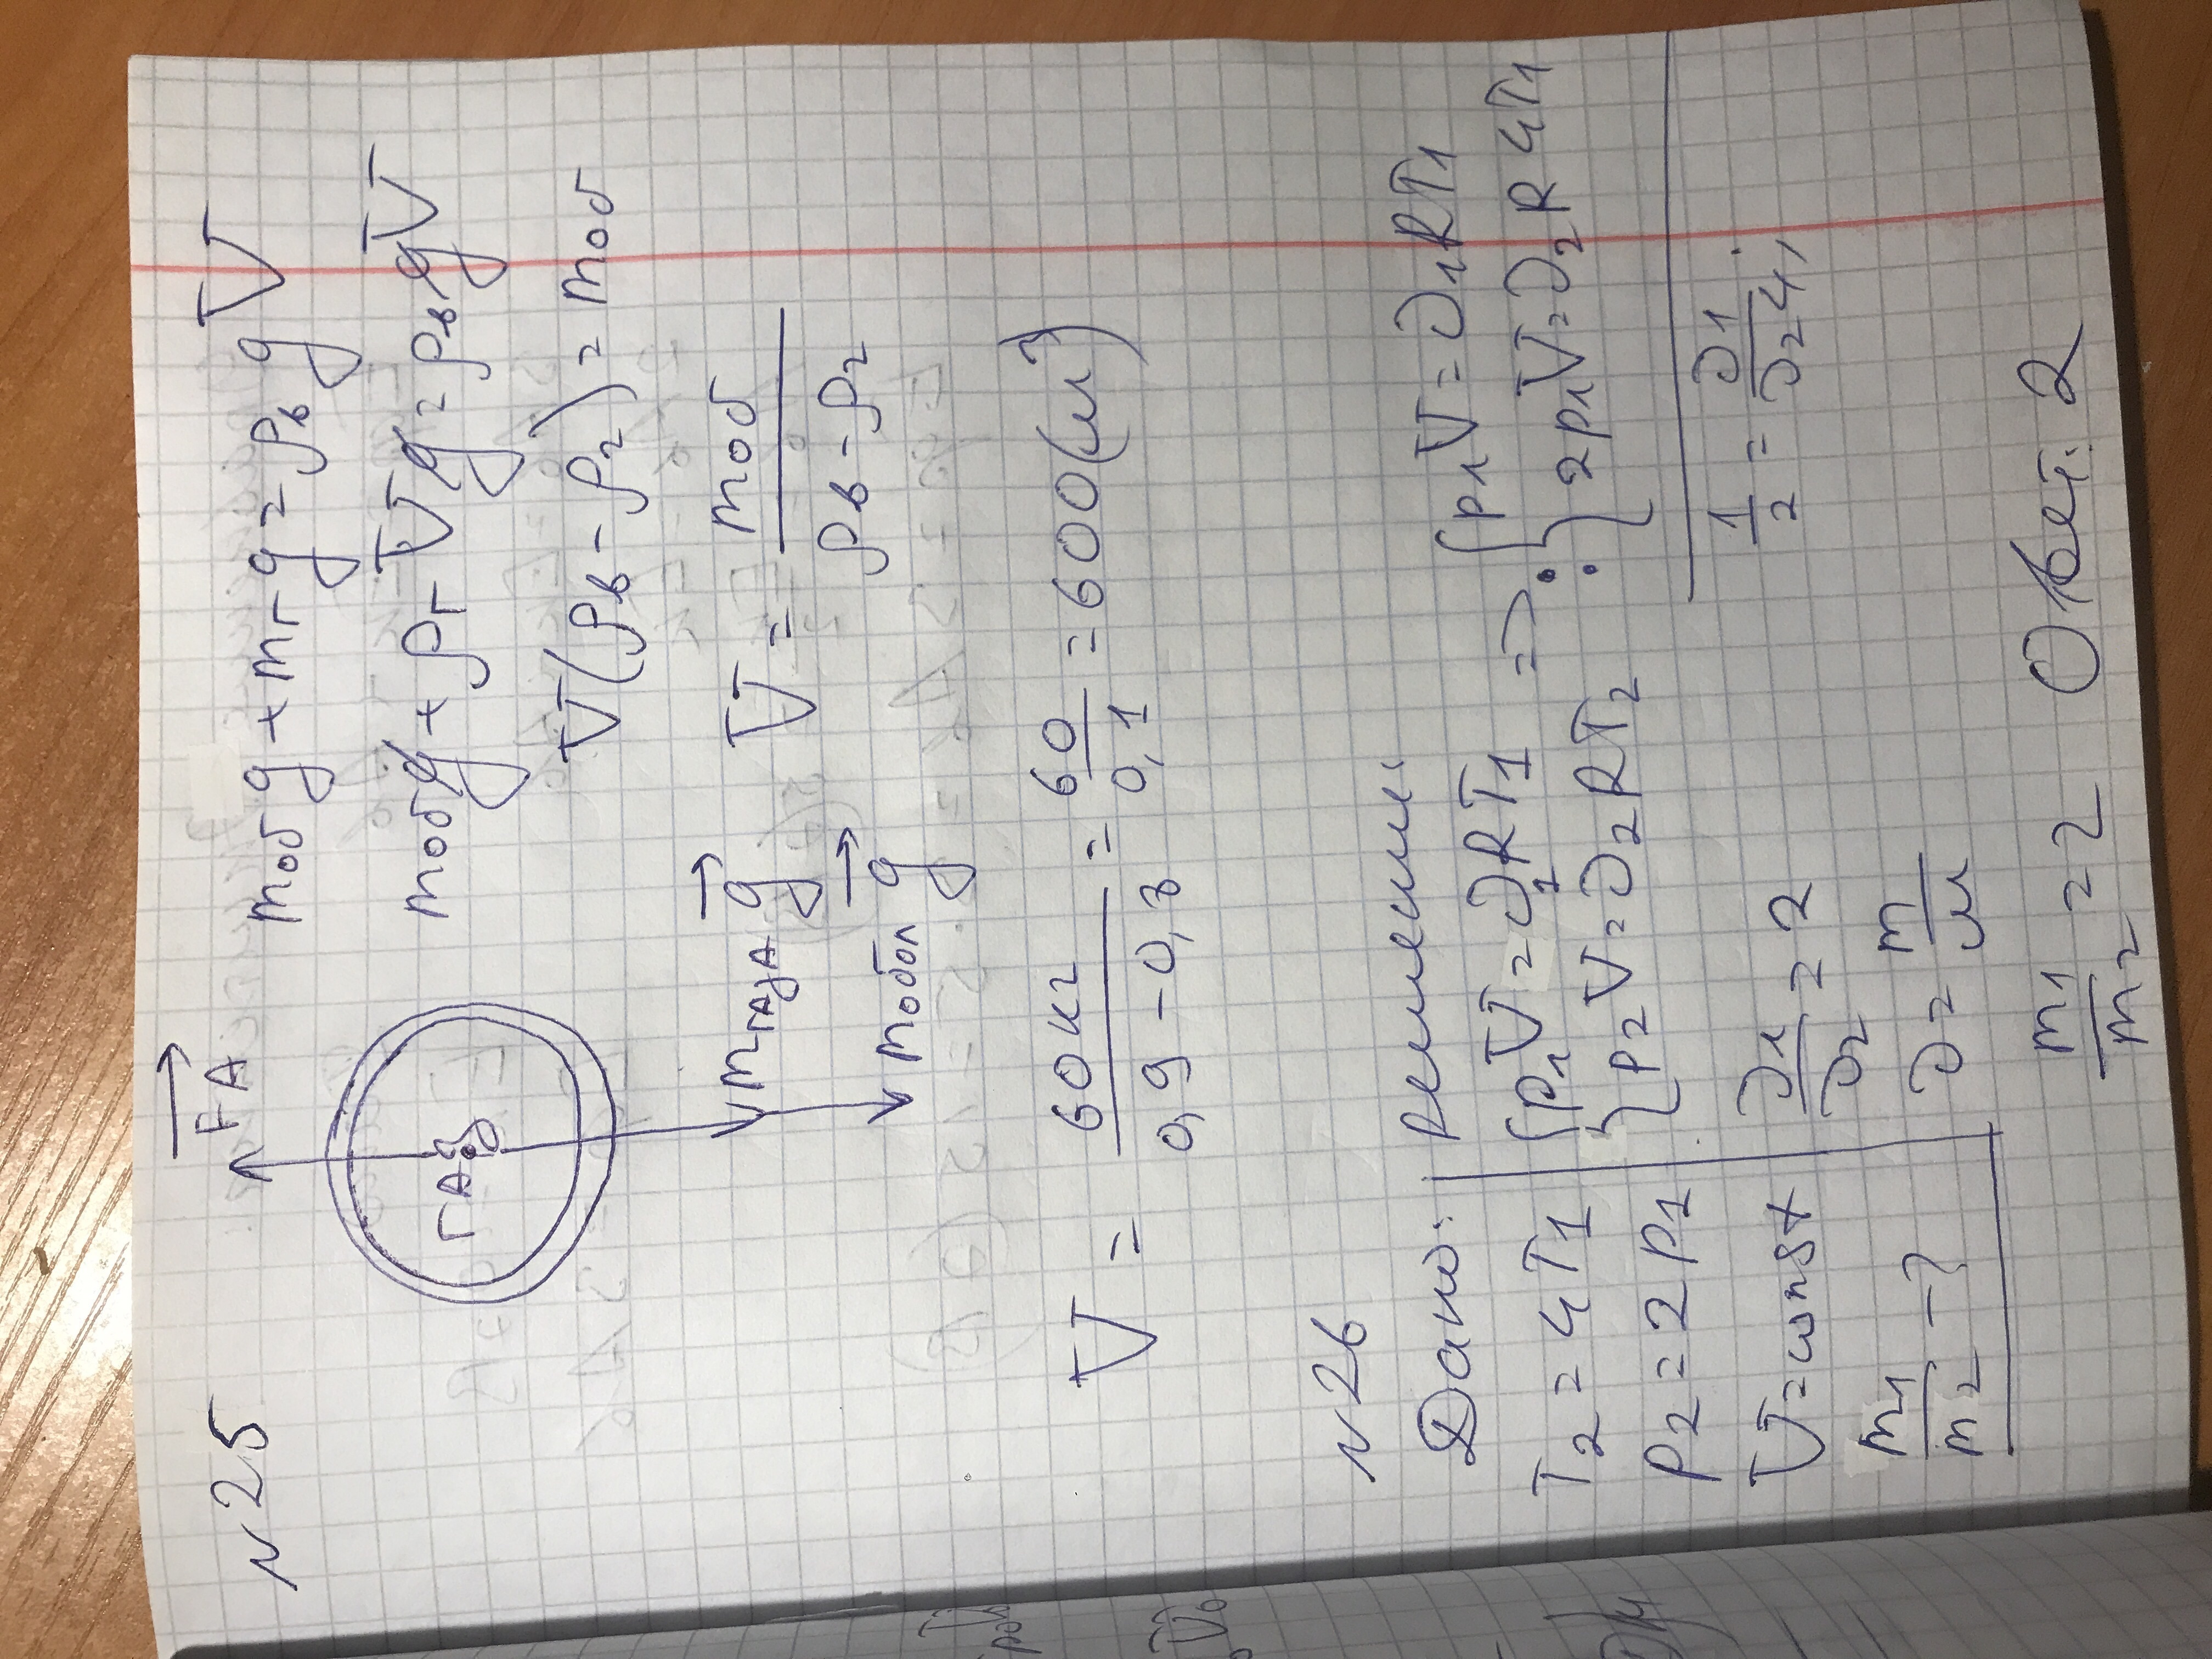 N 25
F A
газ
m газа g
m обол g
mоб g + mг g = ρв g V
mоб g + ρг V g = ρв g V
V(ρв - ρг) = mоб
V = mоб / ρв - ρг
V = 60кг / 0,9 - 0,8 = 60 / 0,1 = 600(м³)
N 26
Дано: Решение:
T2 = 4T1
P2 = 2P1
V = const
m1 / m2 - ?
{ P1V = ν1RT1 => { P1V = ν1RT1
{ P2V = ν2RT2 { 2P1V = ν2R4T1
1 / 2 = ν1 / ν2 4 ;
ν1 / ν2 = 2
ν = m / μ
m1 / m2 = 2 Ответ: 2